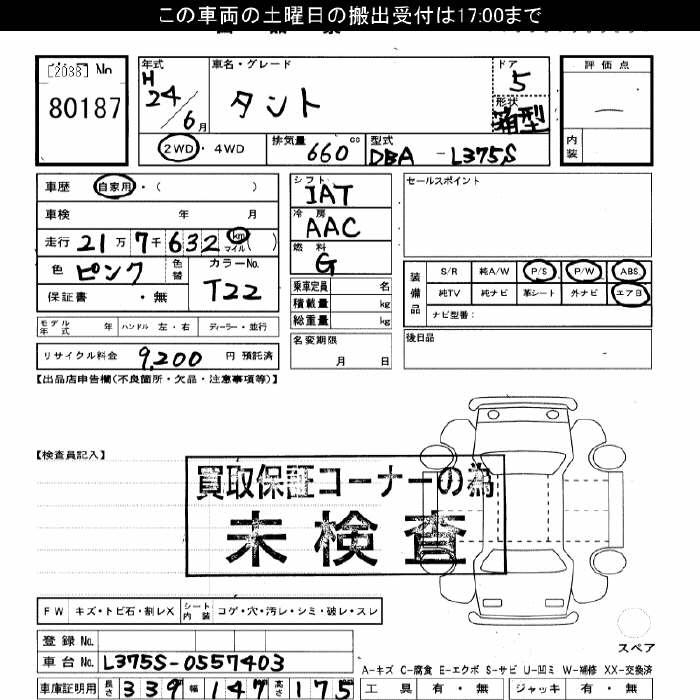 この車両の土曜日の搬出受付は17:00まで
[2038] No
80187
年式
H
24
6月
車名・グレード
タント
ドア
5
形状
箱型
評価点
—
内装
2WD・4WD
排気量 660 cc
型式 DBA -L375S
車歴 自家用・( )
車検 年 月
走行 21万7千632 km マイル ( )
色 ピンク 色替
カラーNo. T22
保証書 ・無
モデル年式 年 ハンドル 左・右 ディーラー・並行
リサイクル料金 9,200 円 預託済
シフト IAT
冷房 AAC
燃料 G
乗車定員 名
積載量 kg
総重量 kg
名変期限
月 日
セールスポイント
装備品
S/R 純A/W P/S P/W ABS
純TV 純ナビ 革シート 外ナビ エアB
ナビ型番:
後日品
【出品店申告欄(不良箇所・欠品・注意事項等)】
【検査員記入】
買取保証コーナーの為
未検査
FW キズ・トビ石・割レX シート内装 コゲ・穴・汚レ・シミ・破レ・スレ
登録No.
車台No. L375S-0557403
車庫証明用 長さ 339 幅 147 高さ 175
スペア
A-キズ C-腐食 E-エクボ S-サビ U-凹ミ W-補修 XX-交換済
工具 有・無 ジャッキ 有・無